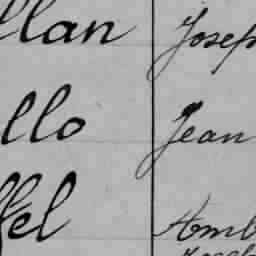 llan Josep
llo Jean
ffel Amb
Josep